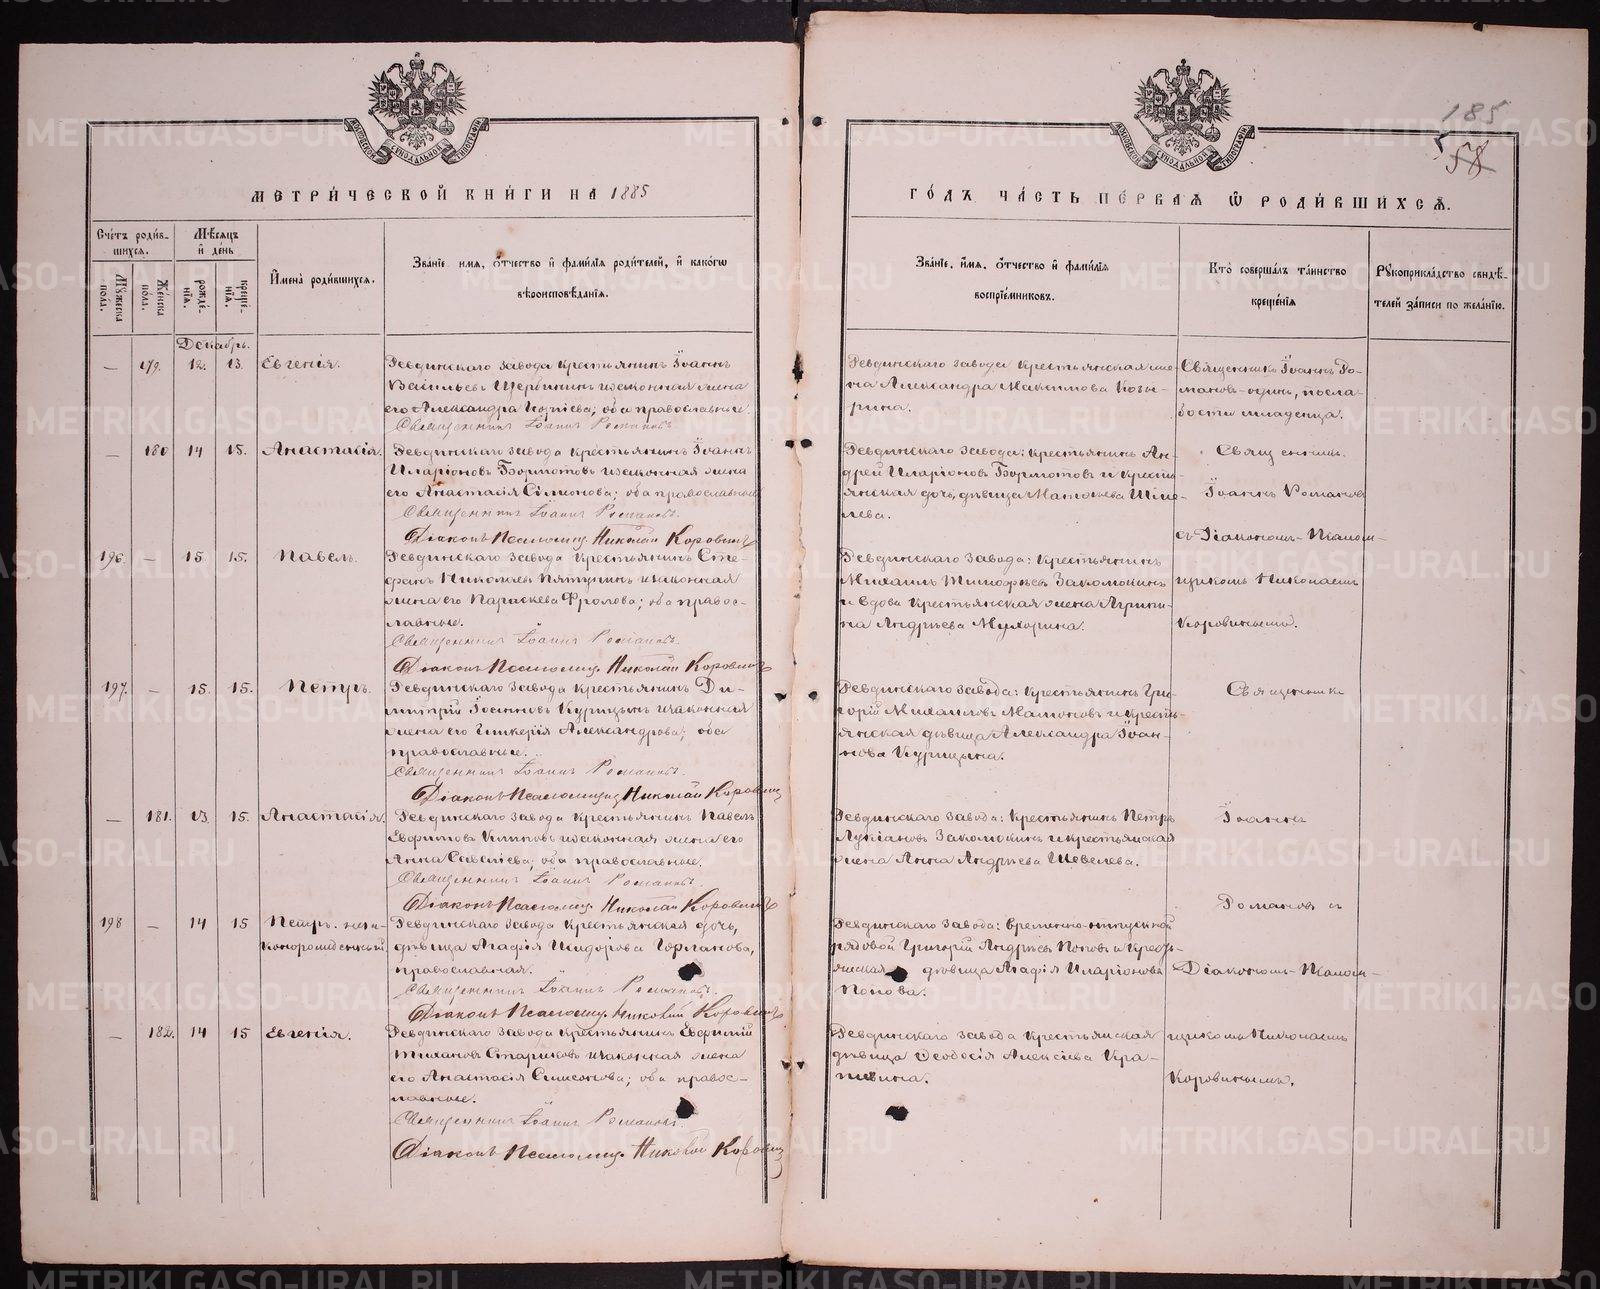 МЕТРИ́ЧЕСКОЙ КНИ́ГИ НА 1885
Сче́тъ роди́в-
шихся.
Мѣ́сяцъ
и҆ де́нь
Му́жеска
по́ла.
Же́нска
по́ла.
рожде́-
нїѧ.
креще́-
нїѧ.
И҆мена̀ роди́вшихся.
Зва́нїе, и҆мѧ, ѻ҆́тчество и҆ фами́лїѧ роди́телей, и҆ како́гѡ
вѣроисповѣ́данїѧ.
Декабрь.
— 179. 12. 13. Евгенія.
Ревдинскаго завода крестьянинъ Іоаннъ
Васильевъ Щербининъ и законная жена
его Александра; оба православные.
Священникъ Іоаннъ Романовъ
— 180 14 15. Анастасія.
Ревдинскаго завода крестьянинъ Іоаннъ
Иларіоновъ Бормотовъ и законная жена
его Анастасія Симонова; оба православные
Священникъ Іоаннъ Романовъ.
Діаконъ Псаломщ. Николай Коровинъ
196. — 15. 15. Павелъ.
Ревдинскаго завода крестьянинъ Сте-
фанъ Николаевъ Пятунинъ и законная
жена его Параскева Фролова; оба правос-
лавные.
Священникъ Іоаннъ Романовъ.
Діаконъ Псаломщ. Николай Коровинъ
197. — 15. 15. Петръ.
Ревдинскаго завода крестьянинъ Ди-
митрій Іоанновъ Курицынъ и законная
жена его Гликерія Александрова; оба
православные.
Священникъ Іоаннъ Романовъ.
Діаконъ Псаломщ. Николай Коровинъ
— 181. 13 15. Анастасія.
Ревдинскаго завода крестьянинъ Павелъ
Евфимовъ и законная жена его
Анна Савліева; оба православные.
Священникъ Іоаннъ Романовъ.
Діаконъ Псаломщ. Николай Коровинъ
198 — 14 15 Петръ. неза-
коннорожденный.
Ревдинскаго завода крестьянская дочь,
дѣвица Агафія Исидорова Горланова,
православная.
Священникъ Іоаннъ Романовъ.
Діаконъ Псаломщ. Николай Коровинъ
— 182. 14 15 Евгенія.
Ревдинскаго завода крестьянинъ Евфимій
Тихановъ Стариковъ и законная жена
его Анастасія Симеонова; оба правос-
лавные.
Священникъ Іоаннъ Романовъ.
Діаконъ Псаломщ. Николай Коровинъ
185
58
ГО́ДЪ ЧА́СТЬ ПЕ́РВАѦ Ѡ҆ РОДИ́ВШИХСѦ.
Зва́нїе, и҆́мѧ, ѻ҆́тчество и҆ фами́лїѧ
воспрїе́мниковъ.
Кто̀ соверша́лъ та́инство
креще́нїѧ
Рꙋкоприкла́дство свидѣ́-
телей за́писи по жела́нїю.
Ревдинскаго завода крестьянская же-
на Александра Максимова Козы-
рина.
Священникъ Іоаннъ Ро-
мановъ одинъ, по сла-
бости младенца.
Ревдинскаго завода: крестьянинъ Ан-
дрей Иларіоновъ Бормотовъ и кресть-
янская дочь, дѣвица Шиле-
лева.
Священникъ
Іоаннъ Романовъ
съ Діакономъ-Псалом-
щикомъ Николаемъ
Коровинымъ.
Ревдинскаго завода: крестьянинъ
Михаилъ Тимофѣевъ Закомокинъ
и вдова крестьянская жена Агрипи-
на Андрѣева Мухорина.
Ревдинскаго завода: крестьянинъ Гри-
горій Михаиловъ Мамоновъ и кресть-
янская дѣвица Александра Іоан-
нова Курицына.
Священникъ
Ревдинскаго завода: крестьянинъ Петръ
Лукіановъ Закомокинъ и крестьянская
жена Анна Андрѣева Шевелева.
Іоаннъ
Романовъ съ
Ревдинскаго завода: временно-отпускной
рядовой Григорій Андрѣевъ Поповъ и кресть-
янская дѣвица Агафія Иларіонова
Попова.
Діакономъ-Псалом-
щикомъ Николаемъ
Коровинымъ.
Ревдинскаго завода крестьянская
дѣвица Ѳеодосія Алексіева Кра-
пивина.